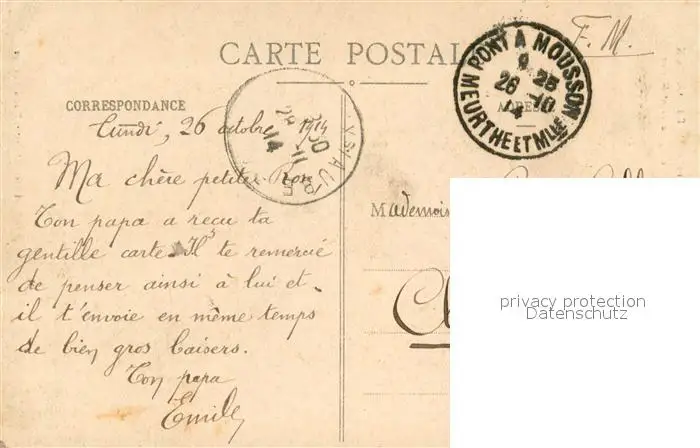 CARTE POSTALE
F. M.
PONT A MOUSSON
9 25
26 10
14
MEURTHE ET MLLE
CORRESPONDANCE
Lundi, 26 octobre 1914
Ma chère petite Rose
Ton papa a reçu ta
gentille carte. Il te remercie
de penser ainsi à lui et
il t'envoie en même temps
de bien gros baisers.
Ton papa
Emile
Mademois
privacy protection
Datenschutz